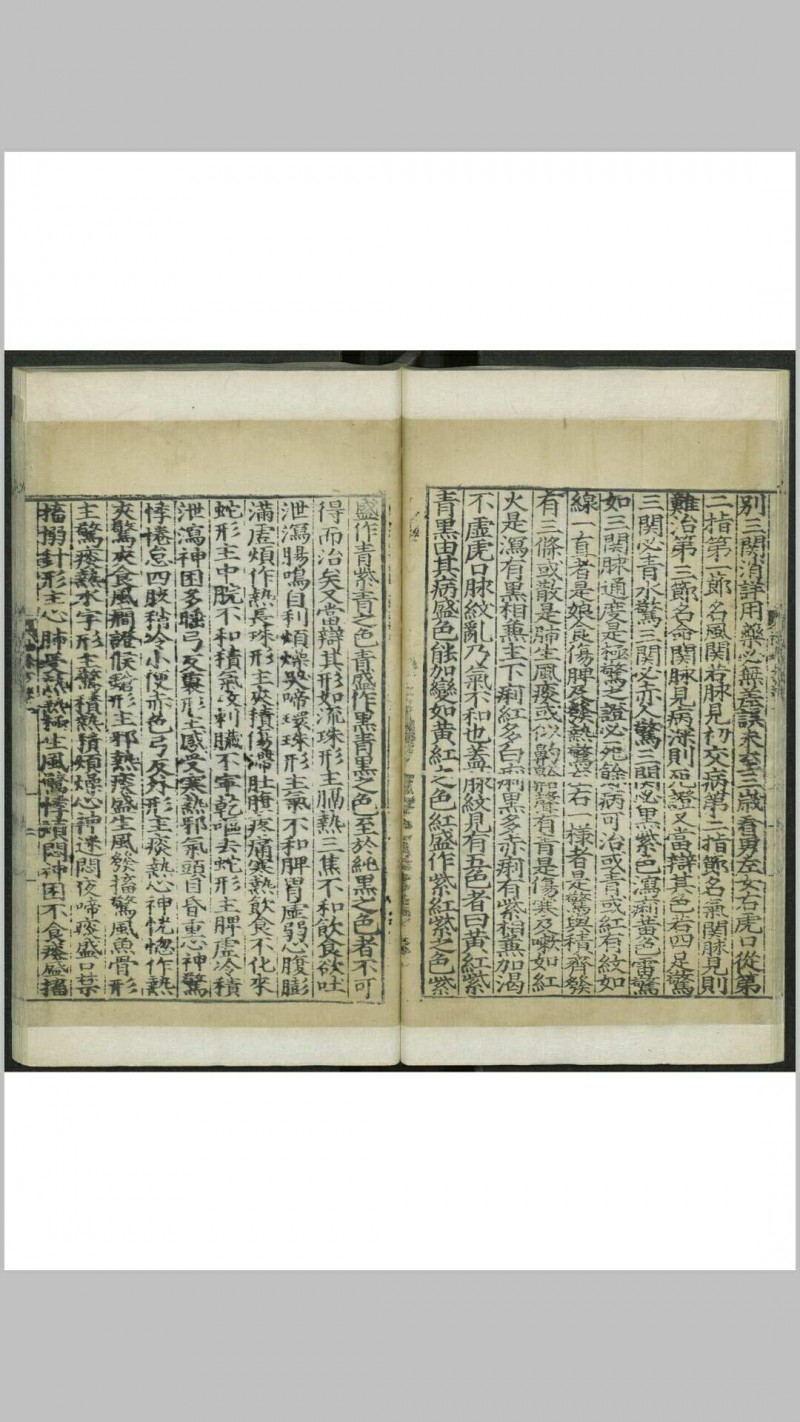 別三關消詳用藥必無差誤未至三歲看男左女右虎口從第
二指第一節名風關若脉見初交病第二指節名氣關脉見則
難治第三節名命關脉見病深則死證又當辯其色若四足驚
三關必青水驚三關必赤人驚三關必黑紫色瀉痢黃色雷驚
如三關脉通度是極驚之證必死餘病可治或青或紅有紋如
線一直者是娘食傷脾及發熱驚左右一樣者是驚與積齊發
有三條或散是肺生風痰或似齁䶎聲有青是傷寒及嗽如紅
火是瀉有黑相兼主下痢紅多白痢黑多赤痢有紫相兼加渴
不虛虎口脉紋亂乃氣不和也蓋脉紋見有五色者曰黃紅紫
青黑由其病盛色能加變如黃紅之色紅盛作紫紅紫之色紫
盛作青紫青之色青盛作黑青黑之色至於純黑之色者不可
得而治矣又當辯其形如流珠形主膈熱三焦不和飲食欲吐
泄瀉腸鳴自利煩燥啼哭環珠形主氣不和脾胃虛弱心腹膨
滿虛煩作熱長珠形主夾積傷滯肚腹疼痛寒熱飲食不化來
蛇形主中脘不和積氣攻刺臟不寧乾嘔去蛇形主脾虛冷積
泄瀉神困多睡弓反裏形主感受寒熱邪氣頭目昏重心神驚
悸倦怠四肢稍冷小便赤色弓反外形主痰熱心神恍惚作熱
夾驚夾食風癇證候鎗形主邪熱痰盛生風發搐驚風魚骨形
主驚痰熱水字形主驚積熱積煩燥心神迷悶夜啼痰盛口禁
搐搦針形主心肺受熱熱極生風驚悸頑悶神困不食痰盛搐